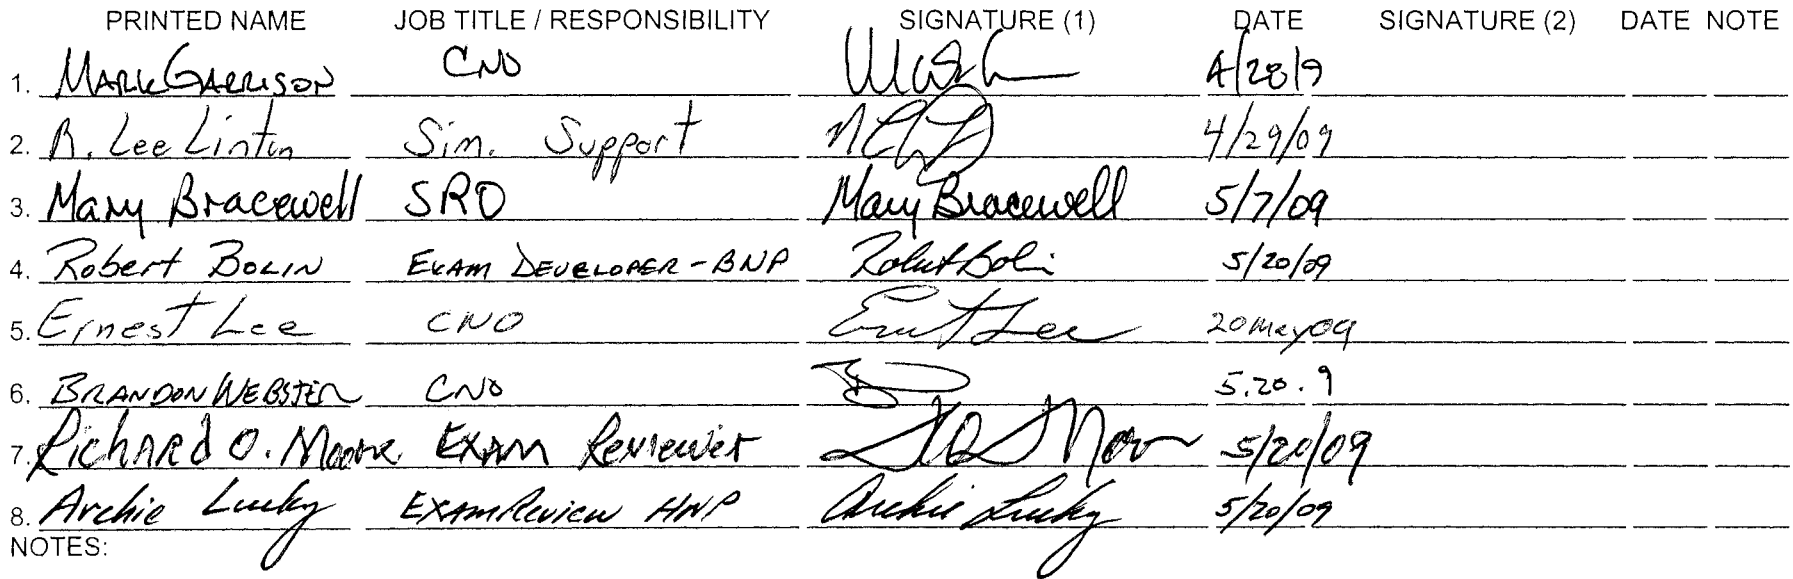 PRINTED NAME JOB TITLE / RESPONSIBILITY SIGNATURE (1) DATE SIGNATURE (2) DATE NOTE
1. MARK GARRISON CNO 4/28/9
2. R. Lee Linton Sim. Support 4/29/09
3. Mary Bracewell SRO Mary Bracewell 5/7/09
4. Robert BOLIN EXAM DEVELOPER-BNP Robert Bolin 5/20/09
5. Ernest Lee CNO Ernest Lee 20 May 09
6. BRANDON WEBSTER CNO 5.20.9
7. Richard O. Moore EXAM Reviewer 5/20/09
8. Archie Lucky EXAM Review HNP Archie Lucky 5/20/09
NOTES: